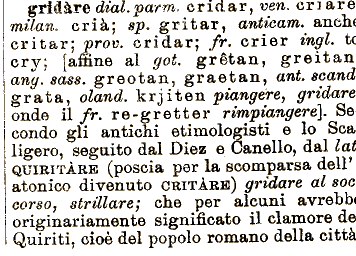 gridàre dial. parm. cridar, ven. criare
milan. crià; sp. gritar, anticam. anche
critar; prov. cridar; fr. crier ingl. to
cry; [affine al got. grêtan, greitan
ang. sass. greotan, graetan, ant. scand
grata, oland. krjiten piangere, gridare
onde il fr. re-gretter rimpiangere]. Se
condo gli antichi etimologisti e lo Sca
ligero, seguito dal Diez e Canello, dal lat
QUIRITÀRE (poscia per la scomparsa dell'
atonico divenuto CRITÀRE) gridare al soc
corso, strillare; che per alcuni avrebbe
originariamente significato il clamore de
Quiriti, cioè del popolo romano della città